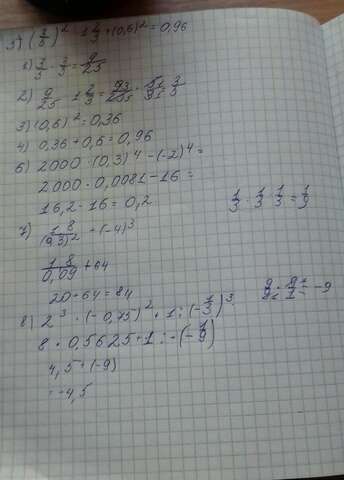 5) (3/5)² · 1 2/3 + (0,6)² = 0,96
1) 3/5 · 3/5 = 9/25
2) 9/25 · 1 2/3 =
3) (0,6)² = 0,36
4) 0,36 + 0,6 = 0,96
6) 2000 · (0,3)⁴ - (-2)⁴ =
2000 · 0,0081 - 16 =
16,2 - 16 = 0,2
1/3 · 1/3 · 1/3 = 1/9
7) 1,8/(0,3)² - (-4)³
1,8/0,09 + 64
20 + 64 = 84
8) 2³ · (-0,75)² + 1 : (-1/3)³
8 · 0,5625 + 1 : -(-1/9)
= -9
4,5 + (-9)
= -4,5